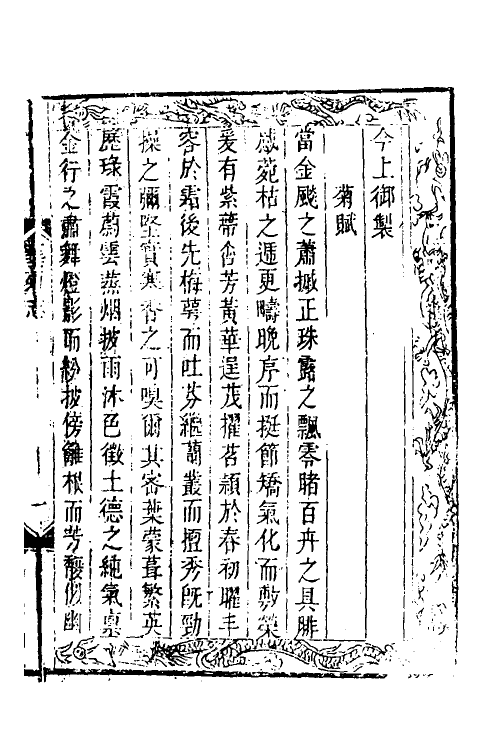 今上御製
菊賦
當金飈之蕭摵正珠露之飄零睹百卉之具腓
感菀枯之遞更疇晚序而挺節矯氣化而敷榮
爰有紫蒂含芳黃華逞茂擢苕穎於春初曜丰
容於霜後先梅萼而吐芬繼蘭叢而擅秀既勁
操之彌堅實寒香之可嗅爾其密葉蒙葺繁英
歷琭霞蔚雲蒸烟披雨沐色徵土德之純氣稟
金行之肅舞燈影而紛披傍籬根而芳馥似幽